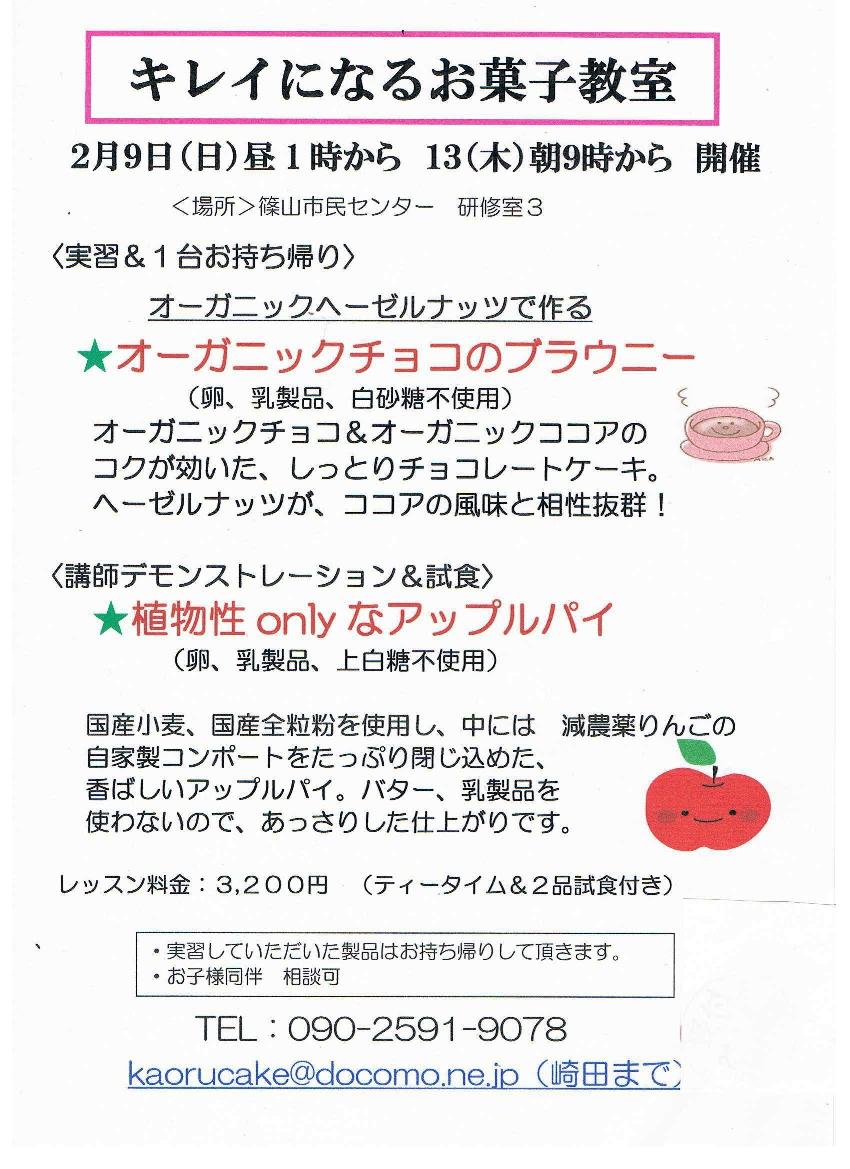 キレイになるお菓子教室
2月9日(日)昼1時から 13(木)朝9時から 開催
＜場所＞篠山市民センター 研修室3
〈実習＆1台お持ち帰り〉
オーガニックヘーゼルナッツで作る
★オーガニックチョコのブラウニー
(卵、乳製品、白砂糖不使用)
オーガニックチョコ＆オーガニックココアの
コクが効いた、しっとりチョコレートケーキ。
ヘーゼルナッツが、ココアの風味と相性抜群！
〈講師デモンストレーション＆試食〉
★植物性 only なアップルパイ
(卵、乳製品、上白糖不使用)
国産小麦、国産全粒粉を使用し、中には 減農薬りんごの
自家製コンポートをたっぷり閉じ込めた、
香ばしいアップルパイ。バター、乳製品を
使わないので、あっさりした仕上がりです。
レッスン料金：3,200円 (ティータイム＆2品試食付き)
・実習していただいた製品はお持ち帰りして頂きます。
・お子様同伴 相談可
TEL：090-2591-9078
kaorucake@docomo.ne.jp (崎田まで)